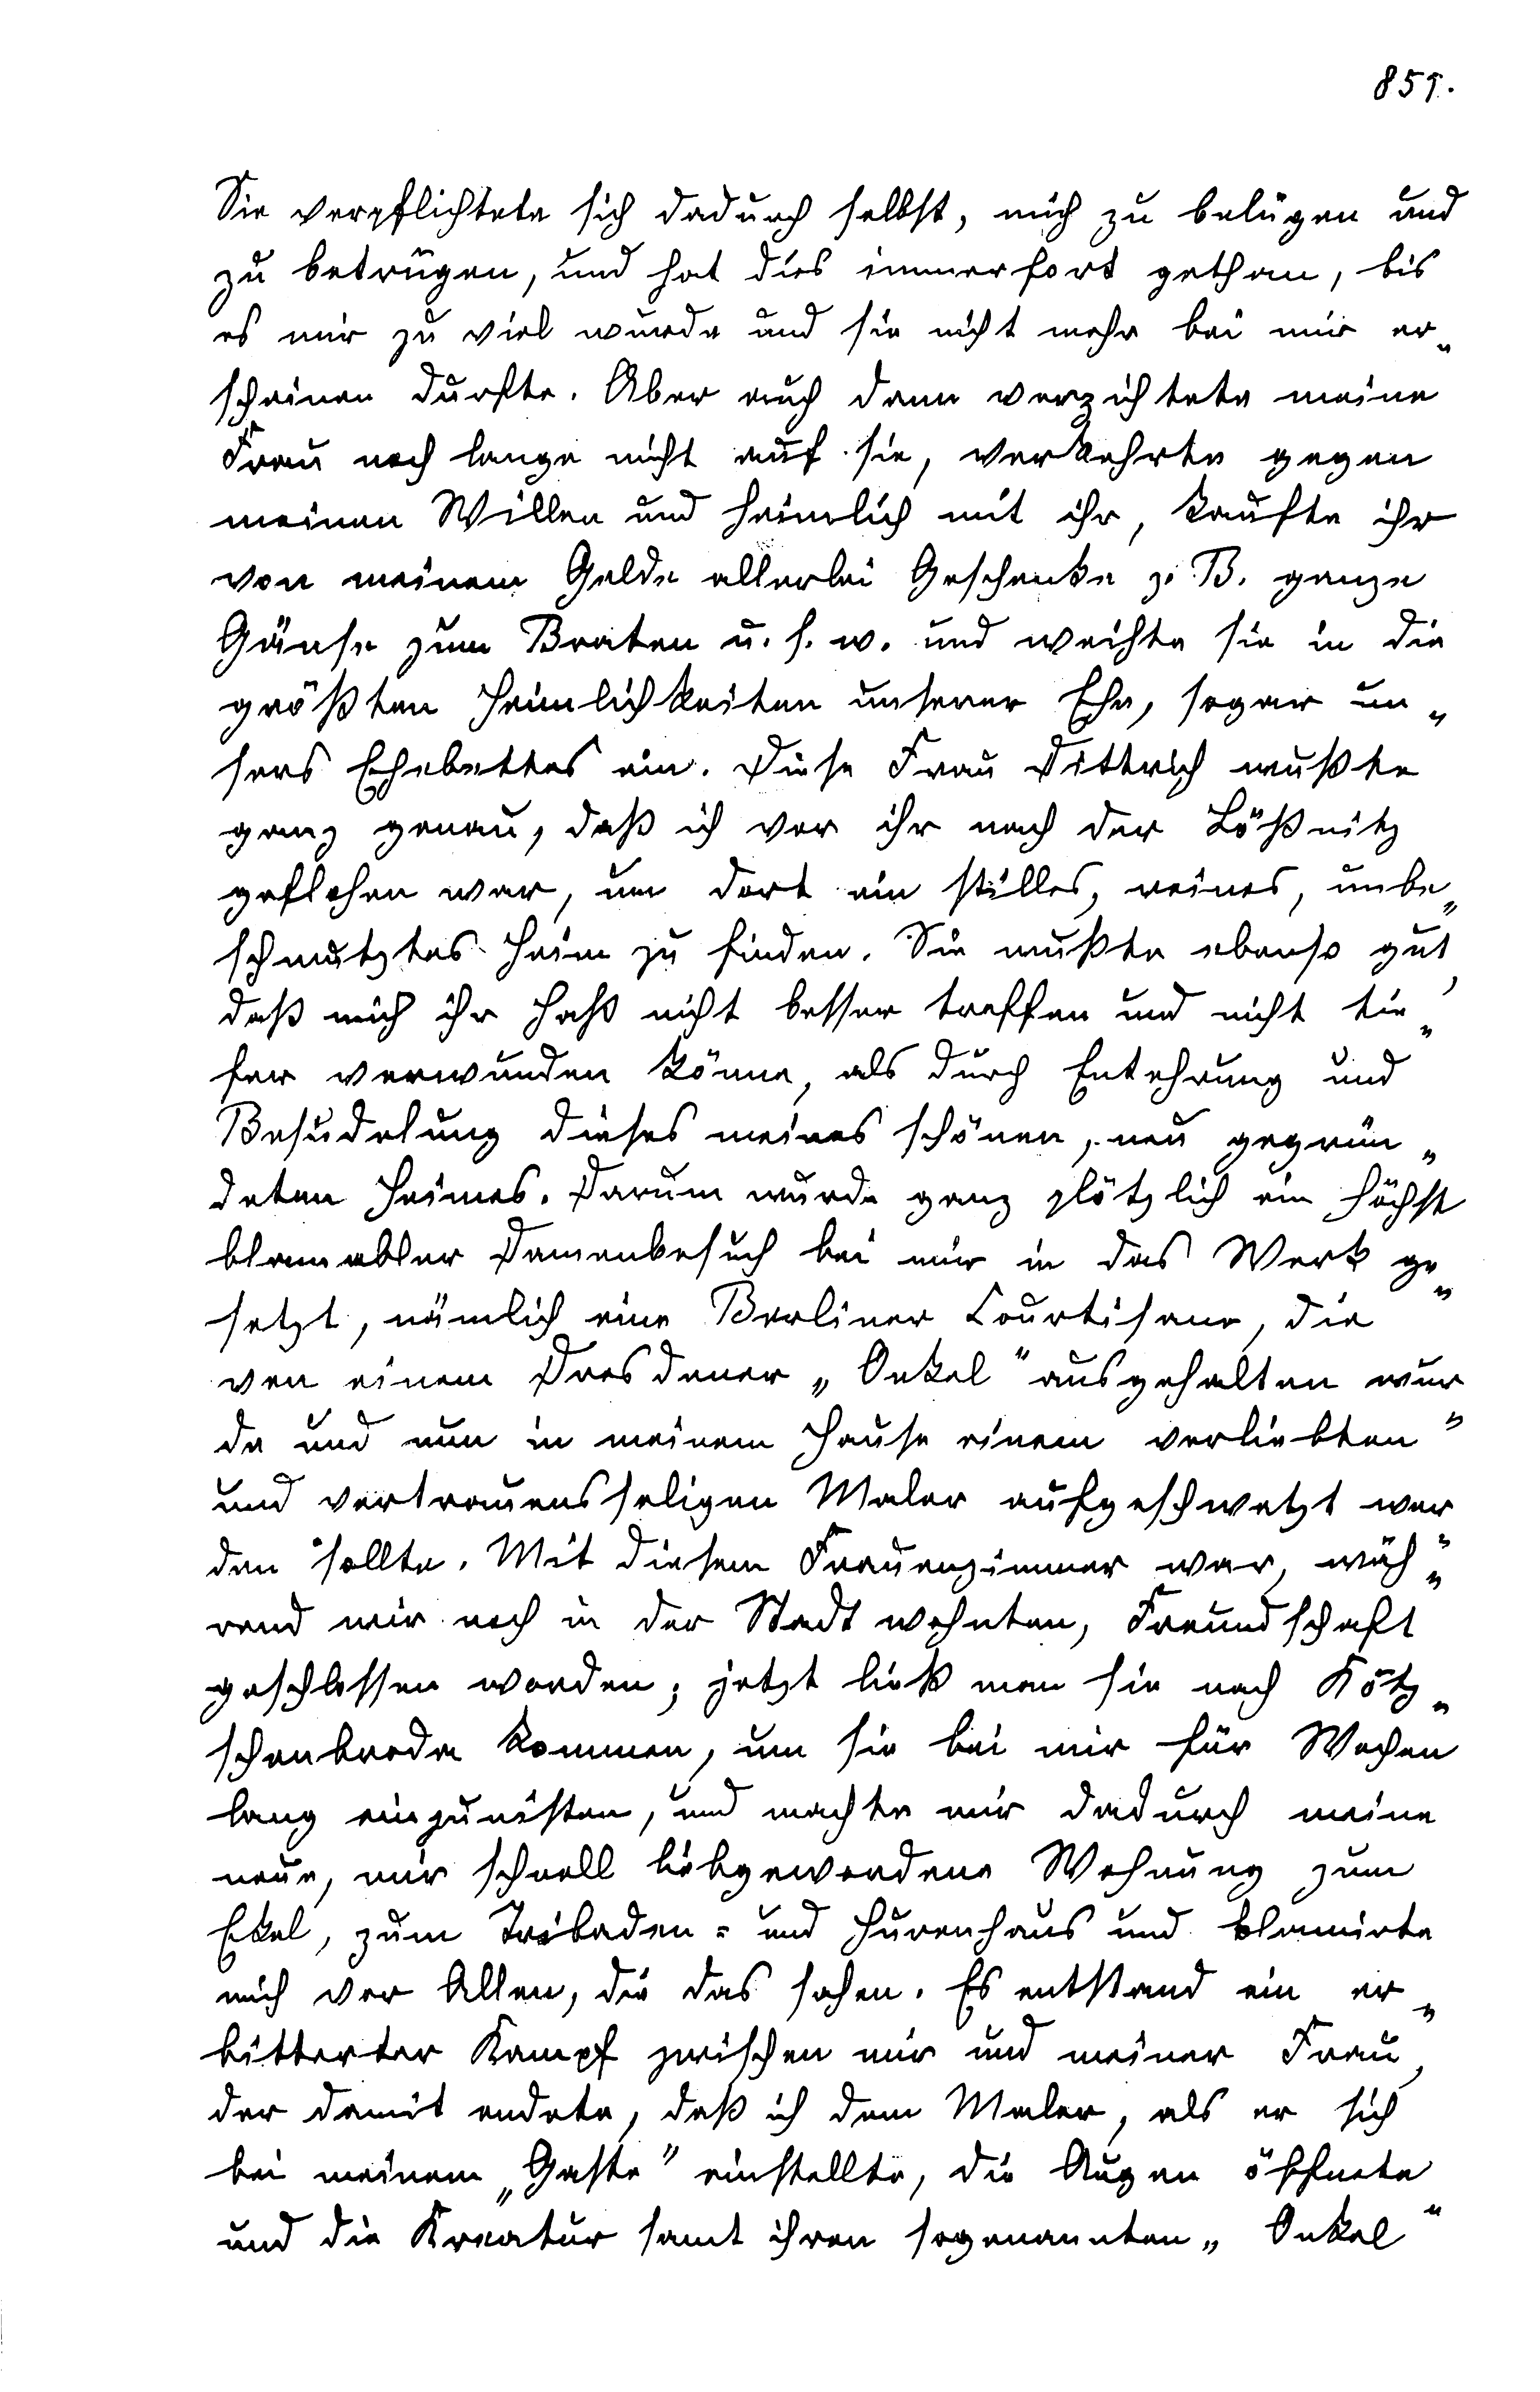 851.
Sie verpflichtete sich dadurch selbst, mich zu belügen und
zu betrügen, und hat dies immerfort gethan, bis
es mir zu viel wurde und sie nicht mehr bei mir er„
scheinen durfte. Aber auch dann verzichtete meine
Frau noch lange nicht auf sie, verkehrte gegen
meinen Willen und heimlich mit ihr, kaufte ihr
von meinem Gelde allerlei Geschenke z. B. ganze
Gänse zum Braten u. s. w. und weihte sie in die
größten Heimlichkeiten unserer Ehe, sogar un„
sers Ehebettes ein. Diese Frau Dittrich wußte
ganz genau, daß ich vor ihr nach der Lößnitz
geflohen war, um dort ein stilles, reines, unbe„
schmutztes Heim zu finden. Sie wußte ebenso gut,
daß mich ihr Haß nicht besser treffen und nicht tie„
fer verwunden könne, als durch Entehrung und
Besudelung dieses meines schönen, neu gegrün„
deten Heimes. Darum wurde ganz plötzlich ein höchst
blamabler Damenbesuch bei mir in das Werk ge„
setzt, nämlich eine Berliner Courtisane, die
von einem Dresdener „Onkel“ ausgehalten wur„
de und nun in meinem Hause einem verliebten
und vertrauensseligen Maler aufgeschwatzt wer„
den sollte. Mit diesem Frauenzimmer war, wäh„
rend wir noch in der Stadt wohnten, Freundschaft
geschlossen worden; jetzt ließ man sie nach Kötz„
schenbroda kommen, um sie bei mir für Wochen
lang einzunisten, und machte mir dadurch meine
neue, mir schnell liebgewordene Wohnung zum
Ekel, zum Tribaden- und Hurenhaus und blamirte
mich vor Allen, die das sahen. Es entstand ein er„
bitterter Kampf zwischen mir und meiner Frau,
der damit endete, daß ich dem Maler, als er sich
bei meinem „Gaste“ einstellte, die Augen öffnete
und die Kreatur samt ihren sogenannten „Onkel“